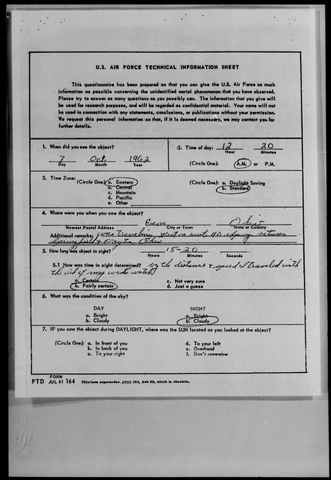 U.S. AIR FORCE TECHNICAL INFORMATION SHEET
This questionnaire has been prepared so that you can give the U.S. Air Force as much
information as possible concerning the unidentified aerial phenomenon that you have observed.
Please try to answer as many questions as you possibly can. The information that you give will
be used for research purposes, and will be regarded as confidential material. Your name will not
be used in connection with any statements, conclusions, or publications without your permission.
We request this personal information so that, if it is deemed necessary, we may contact you for
further details.
1. When did you see the object?
7 Oct. 1962
Day Month Year
2. Time of day: 12 20
Hour Minutes
(Circle One): A.M. or P.M.
3. Time Zone:
(Circle One): a. Eastern
b. Central
c. Mountain
d. Pacific
e. Other
(Circle One): a. Daylight Saving
b. Standard
4. Where were you when you saw the object?
Enon Ohio
Nearest Postal Address City or Town State or Country
Additional remarks: I was traveling west on route 40 between
Springfield & Dayton Ohio
5. How long was object in sight? 15-20
Hours Minutes Seconds
5.1 How was time in sight determined? by the distance & speed I traveled with
the aid of my wrist watch
a. Certain
b. Fairly certain
c. Not very sure
d. Just a guess
6. What was the condition of the sky?
DAY NIGHT
a. Bright a. Bright
b. Cloudy b. Cloudy
7. IF you saw the object during DAYLIGHT, where was the SUN located as you looked at the object?
(Circle One): a. In front of you d. To your left
b. In back of you e. Overhead
c. To your right f. Don't remember
FORM
FTD JUL 61 164 This form supersedes ATIC 164, which is obsolete.